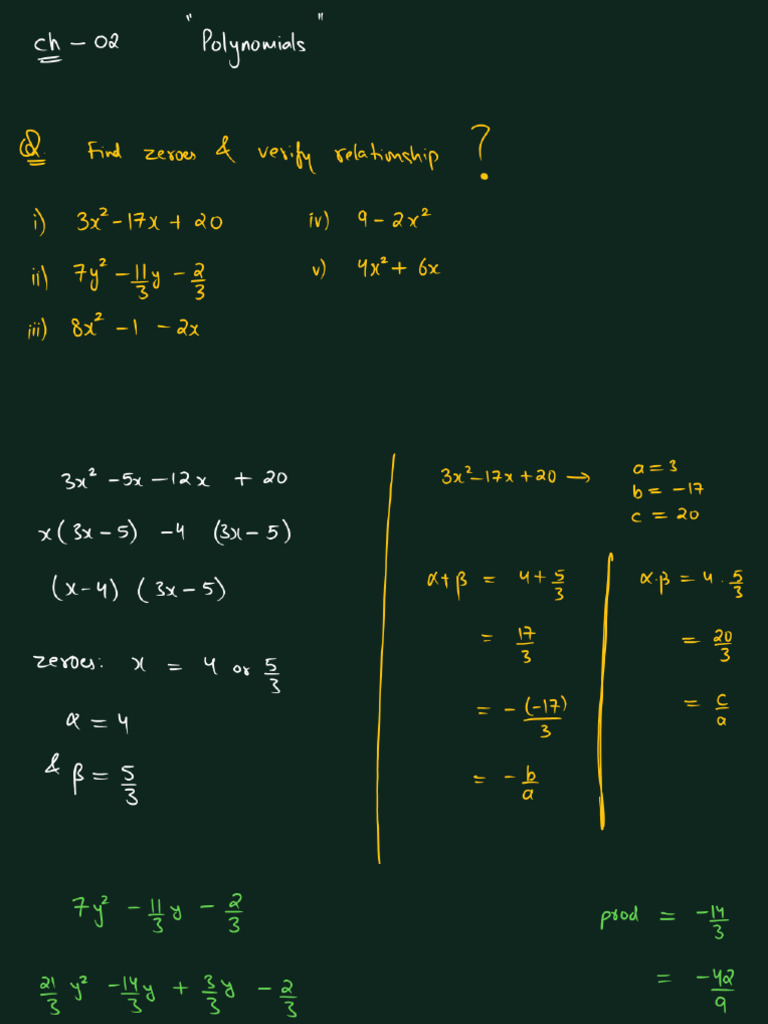 ch - 02 "Polynomials"
Q Find zeroes & verify relationship ?
i) 3x² - 17x + 20
ii) 7y² - 11/3 y - 2/3
iii) 8x² - 1 - 2x
iv) 9 - 2x²
v) 4x² + 6x
3x² - 5x - 12x + 20
x(3x - 5) - 4 (3x - 5)
(x - 4) (3x - 5)
zeroes: x = 4 or 5/3
α = 4
& β = 5/3
3x² - 17x + 20 →
a = 3
b = -17
c = 20
α + β = 4 + 5/3
= 17/3
= - (-17)/3
= - b/a
α.β = 4 . 5/3
= 20/3
= c/a
7y² - 11/3 y - 2/3
21/3 y² - 14/3 y + 3/3 y - 2/3
prod = -14/3
= -42/9